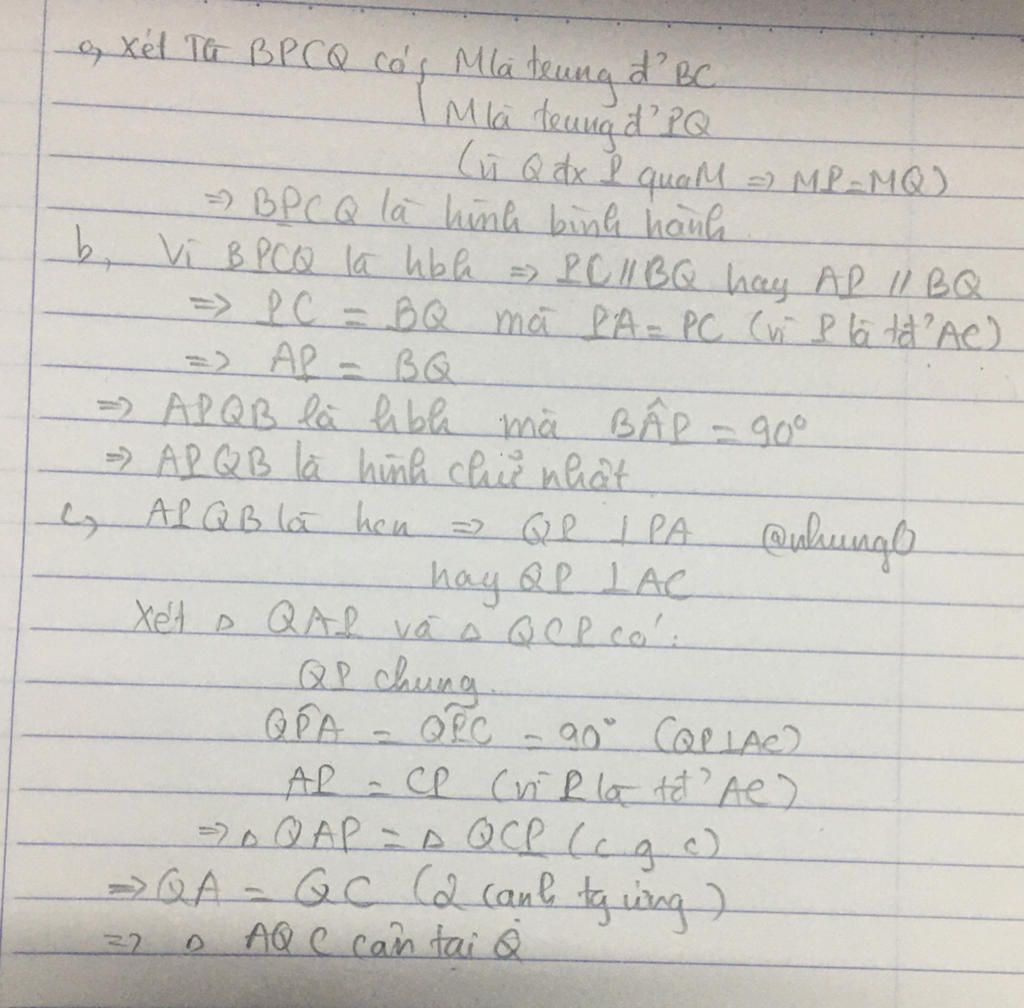 a, Xét Tứ BPCQ có { M là trung đ' BC
M là trung đ' PQ
(vì Q đx P qua M => MP=MQ)
=> BPCQ là hình bình hành
b, Vì BPCQ là hbh => PC // BQ hay AP // BQ
=> PC = BQ mà PA = PC (vì P là tđ' AC)
=> AP = BQ
=> APQB là hbh mà BÂP = 90°
=> APQB là hình chữ nhật
c, APQB là hcn => QP ⊥ PA @nhung
hay QP ⊥ AC
Xét △ QAP và △ QCP có:
QP chung.
QP̂A = QP̂C = 90° (QP⊥AC)
AP = CP (vì P là tđ' AC)
=> △ QAP = △ QCP (c g c)
=> QA = QC (2 cạnh tg ứng)
=> △ AQC cân tại Q